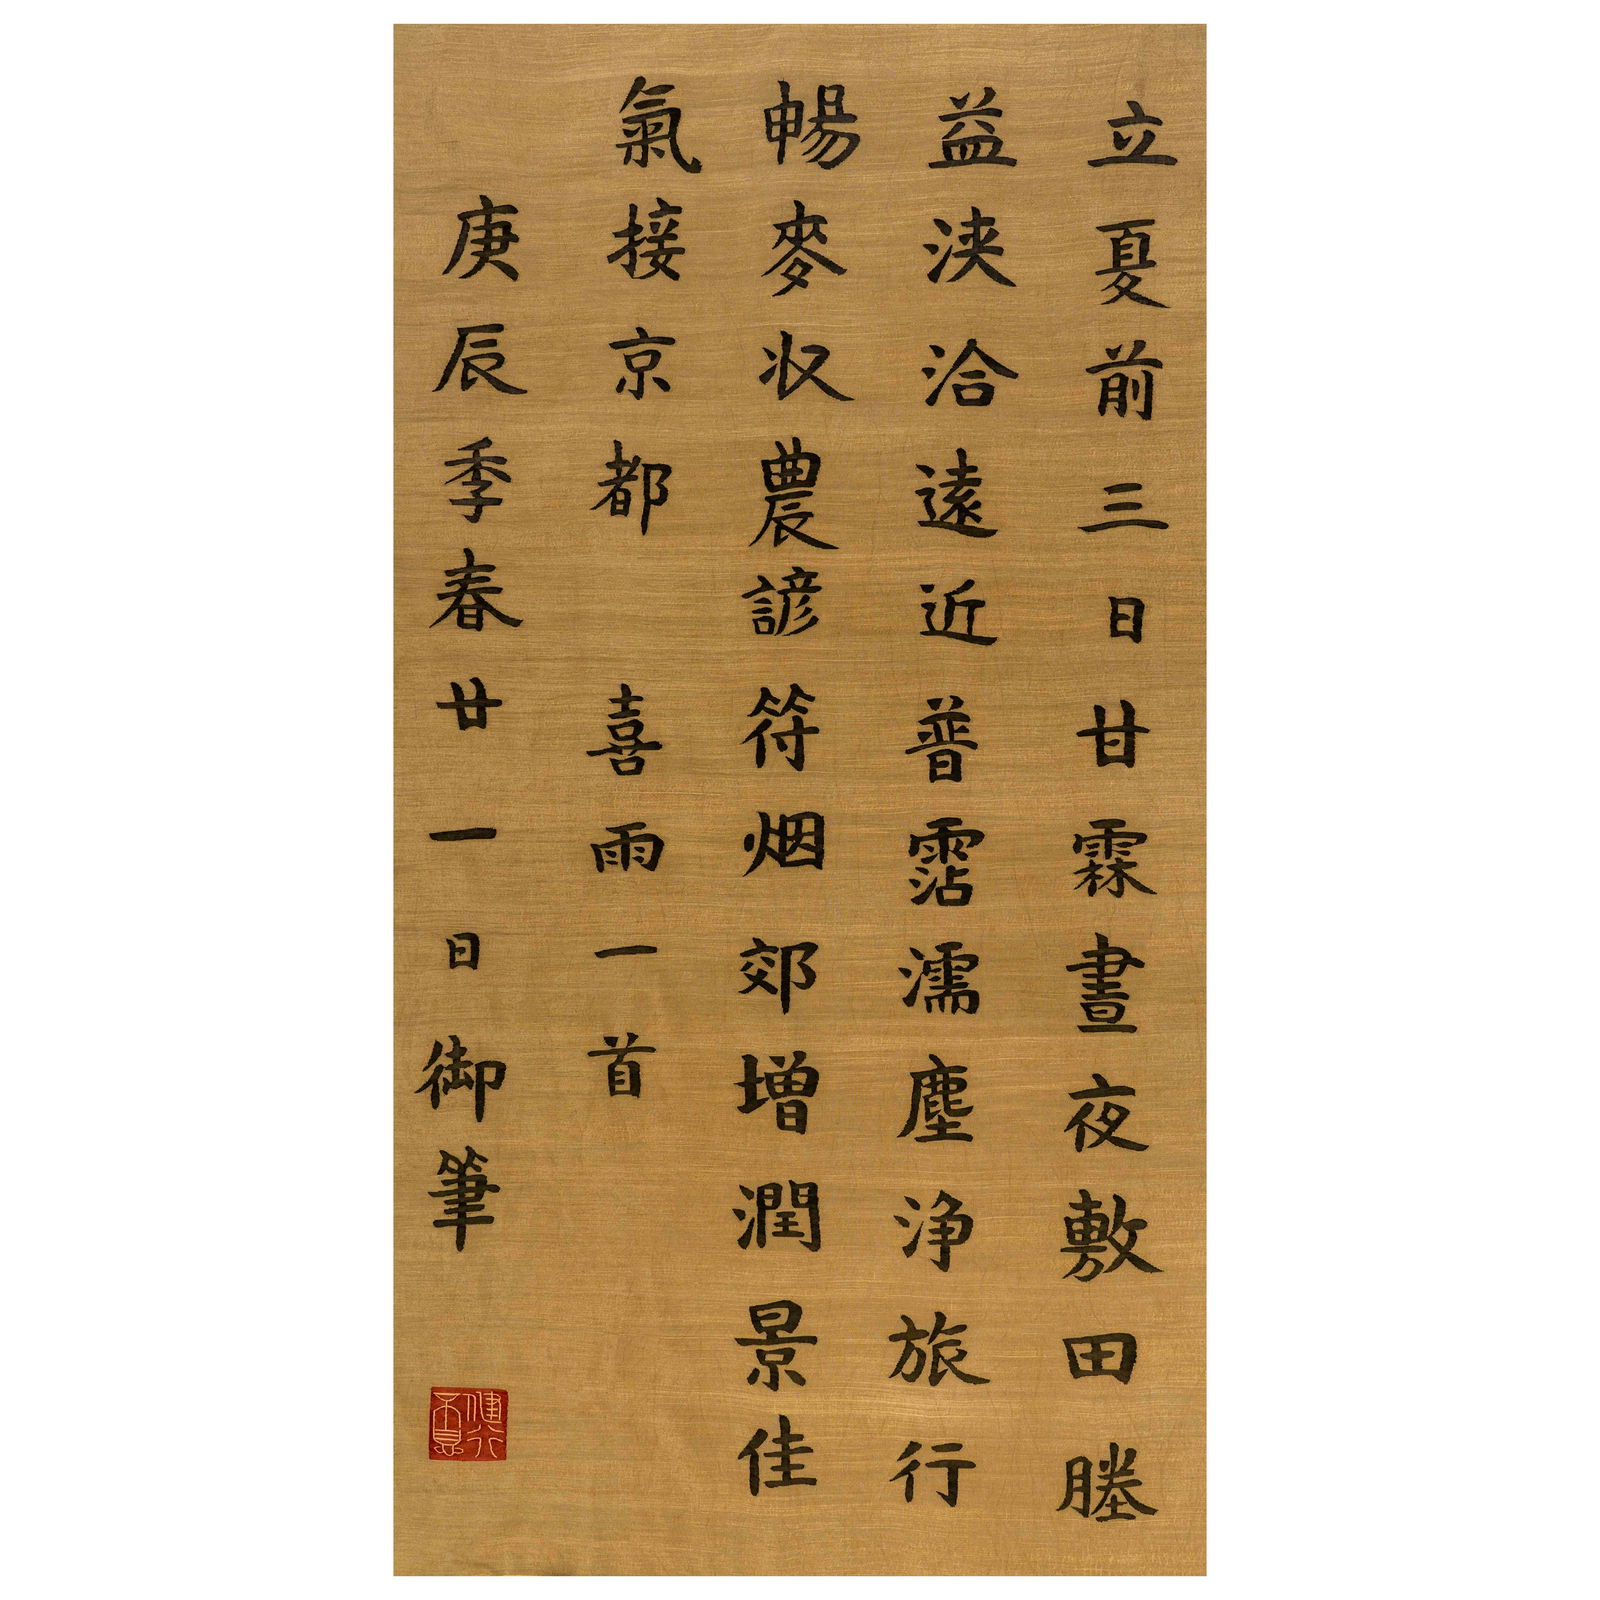 立夏前三日甘霖晝夜敷田塍
益浹洽遠近普霑濡塵浄旅行
暢麥収農諺符烟郊增潤景佳
氣接京都 喜雨一首
庚辰季春廿一日御筆
健行不息